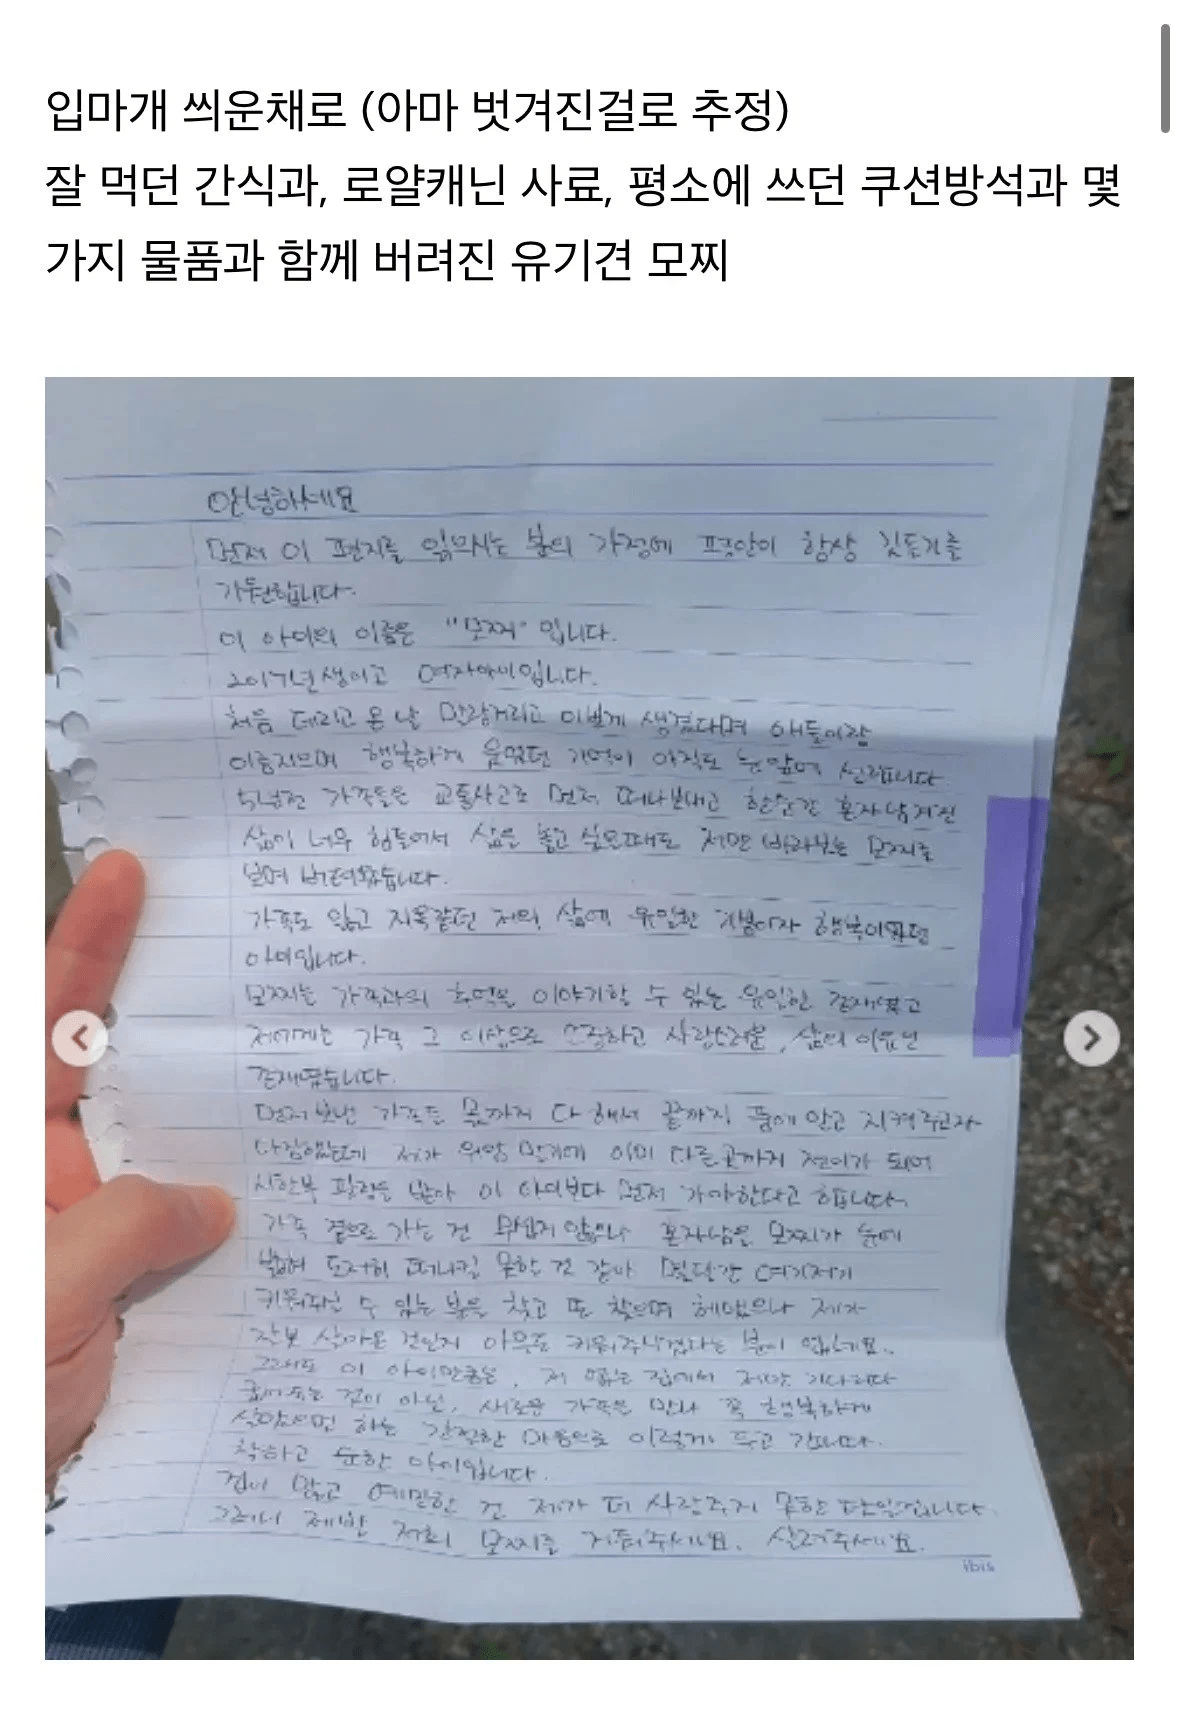 입마개 씌운채로 (아마 벗겨진걸로 추정)
잘 먹던 간식과, 로얄캐닌 사료, 평소에 쓰던 쿠션방석과 몇
가지 물품과 함께 버려진 유기견 모찌
안녕하세요
먼저 이 편지를 읽으시는 분의 가정에 평안이 항상 깃들기를
기원합니다.
이 아이의 이름은 "모찌" 입니다.
2017년생이고 여자아이입니다.
처음 데리고 온 날 말랑거리고 이쁘게 생겼다며 애들이랑
이름지으며 행복하게 웃었던 기억이 아직도 눈앞에 선합니다.
5년전 가족들은 교통사고로 먼저 떠나보내고 한순간 혼자남겨진
삶이 너무 힘들어서 삶을 놓고 싶을때도 저만 바라보는 모찌를
보며 버텨왔습니다.
가족도 잃고 지옥같던 저의 삶에 유일한 희망이자 행복이였던
아이입니다.
모찌는 가족과의 추억을 이야기할 수 있는 유일한 존재였고
저에게는 가족 그 이상으로 소중하고 사랑스러운, 삶의 이유인
존재였습니다.
먼저보낸 가족들 몫까지 다 해서 끝까지 품에 안고 지켜주고자
다짐했는데 제가 위암 말기에 이미 다른곳까지 전이가 되어
시한부 판정을 받아 이 아이보다 먼저 가야한다고 합니다.
가족 곁으로 가는 건 무섭지 않으나 혼자남을 모찌가 눈에
밟혀 도저히 떠나질 못할 것 같아 몇달간 여기저기
키워주실 수 있는 분을 찾고 또 찾으며 헤맸으나 제가
잘못 살아온 것인지 아무도 키워주시겠다는 분이 없네요..
그래도 이 아이만큼은, 저 없는 집에서 저만 기다리다
굶어죽는 것이 아닌, 새로운 가족을 만나 꼭 행복하게
살았으면 하는 간절한 마음으로 이렇게 두고 갑니다.
착하고 순한 아이입니다.
겁이 많고 예민한 건 제가 더 사랑주지 못한 탓입니다.
그러니 제발 저희 모찌를 거둬주세요, 살려주세요.
ibis